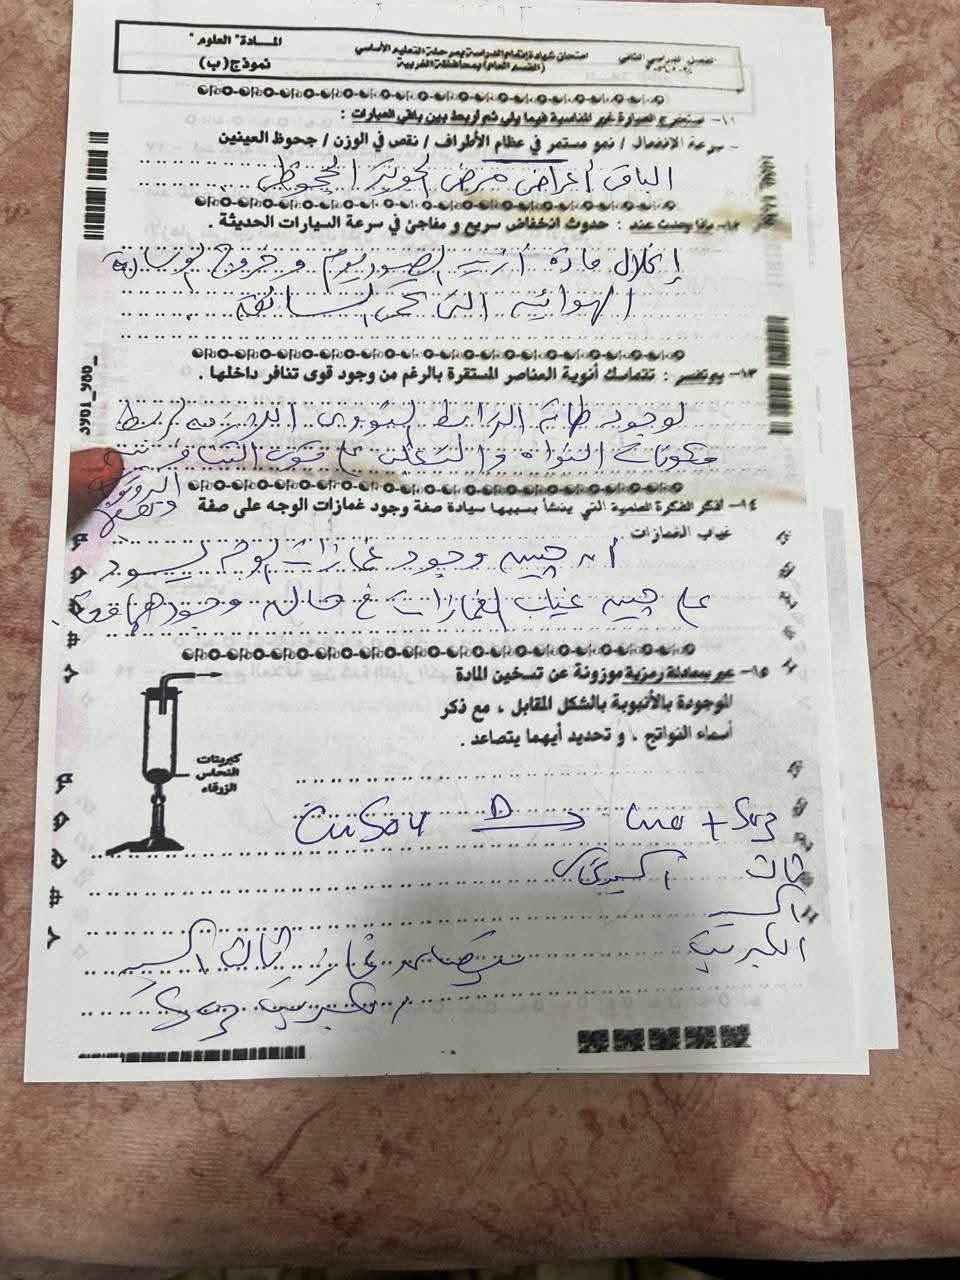 المـــادة " العلوم "
نموذج (ب)
امتحان شهادة إتمام الدراسة بمرحلة التعليم الأساسي
(القسم العام) بمحافظة الغربية
الفصل الدراسي الثاني
١١- استخرج العبارة غير المناسبة فيما يلي ثم أربط بين باقي العبارات :
- سرعة الانفعال / نمو مستمر في عظام الأطراف / نقص في الوزن / جحوظ العينين
الباقى أعراض مرض الجويتر الجحوظى
١٢- ماذا يحدث عند : حدوث انخفاض سريع و مفاجئ في سرعة السيارات الحديثة .
إنحلال مادة أزيد الصوديوم و خروج الوسادة
الهوائية التى تحمى السائق
١٣- بم تفسر : تتماسك أنوية العناصر المستقرة بالرغم من وجود قوى تنافر داخلها .
لوجود طاقة الترابط النووى اللازمة لربط
مكونات النواة والتغلب على قوة التنافر بين
البروتونات
١٤- اذكر الفكرة العلمية التي ينشأ بسببها سيادة صفة وجود غمازات الوجه على صفة
غياب الغمازات
أن جين وجود غمازات الوجه يسود
على جين غياب الغمازات فى حالة وجودهما معًا
١٥- عبر بمعادلة رمزية موزونة عن تسخين المادة
الموجودة بالأنبوبة بالشكل المقابل ، مع ذكر
أسماء النواتج ، و تحديد أيهما يتصاعد .
كبريتات
النحاس
الزرقاء
CuSo4 Δ→ Cuo + So3
ثالث أكسيد
الكبريت
يتصاعد غاز ثالث أكسيد
الكبريت So3